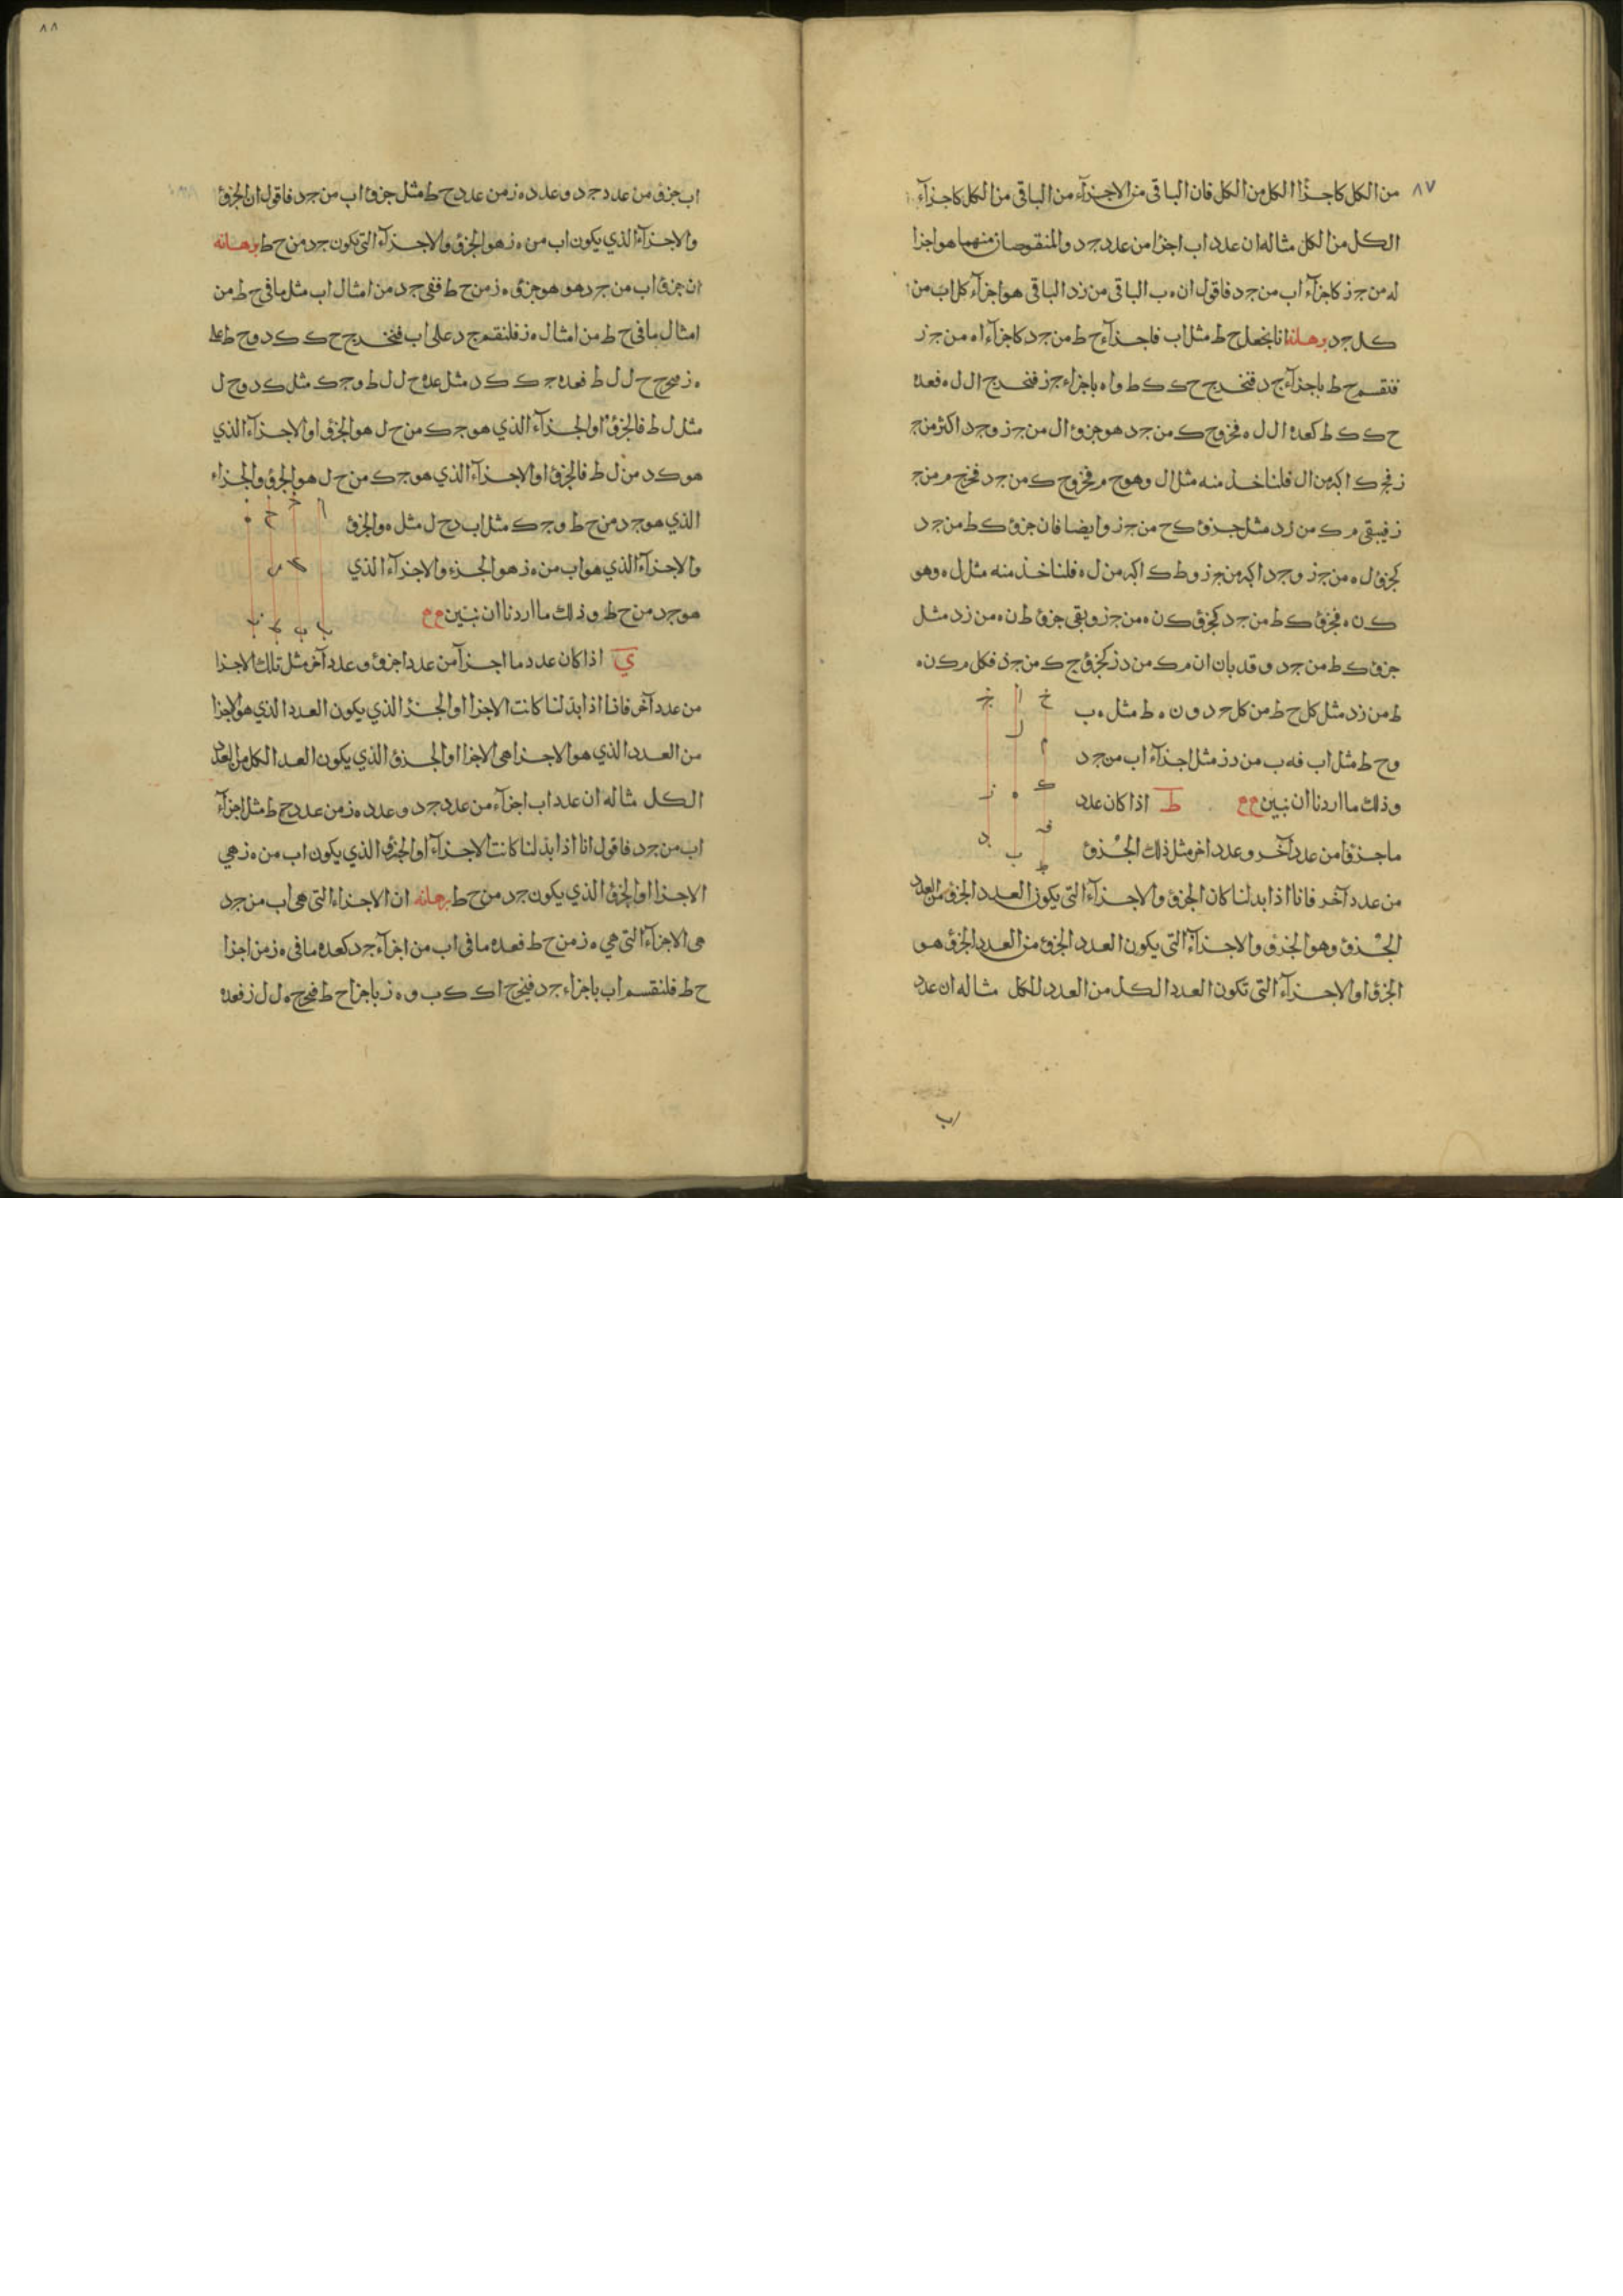 ٨٧
من الكل كاجزا الكل من الكل فان الباقى من الاجزآء من الباقى من الكل كاجزآء
الكل من الكل مثاله ان عدد اب اجزا من عدد جد والمنقوصان منهما هو اجزا
له من جز كاجزآء اب من جد فاقول ان ه ب الباقى من زد الباقى هو اجزآء كل اب من
كل جد برهانه انا نجعل ح ط مثل اب فاجزآء ح ط من جد كاجزآء اه من جز
فنقسم ح ط باجزآء جد فتخرج ح ك ك ط و اه باجزاء جز فتخرج ال ل ه فعدة
ح ك ك ط كعدة ال ل ه فجزو ح ك من جد هو جزؤ ال من جز و جد اكثر من ج
ز فح ك اكبر من ال فلناخذ منه مثل ال وهو ح م فجزو ح ك من جد فح م من ج
ز فيبقى م ك من زد مثل جزؤ ك ح من جز وايضا فان جزؤ ك ط من جد
كجزؤ ل ه من جز و جد اكبر من جز و ط ك اكبر من ل ه فلناخذ منه مثل ل ه وهو
ك ن ه فجزؤ ك ط من جد كجزؤ ك ن ه من جز و بقى جزؤ ط ن ه من زد مثل
جزؤ ك ط من جد و قد بان ان م ك من دز كجزؤ ح ك من جد فكل م ك ن ه
ط من زد مثل كل ح ط من كل جد و ن ه ط مثل ه ب
وح ط مثل اب فه ب من دز مثل اجزآء اب من جد
وذلك ما اردنا ان نبين ط اذا كان عدد
ما جزؤا من عدد آخر وعدد اخر مثل ذلك الجزؤ
من عدد آخر فانا اذا بدلنا كان الجزؤ والاجزآء التى يكون العدد الجزؤ من العدد
الجزؤ وهو الجزؤ والاجزآء التى يكون العدد الجزؤ من العدد الجزؤ هو
الجزؤ او الاجزآء التى تكون العدد الكل من العدد للكل مثاله ان عدد
اب
٨٨
اب جزؤ من عدد جد وعدد ه ز من عدد ح ط مثل جزؤ اب من جد فاقول ان الجزؤ
والاجزآء الذي يكون اب من ه ز هو الجزؤ والاجزآء التى تكون جد من ح ط برهانه
ان جزؤ اب من جد هو هو جزؤ ه ز من ح ط ففى جد من امثال اب مثل ما فى ح ط من
امثال ما فى ح ط من امثال ه ز فلنقسم جد على اب فتخرج ج ك ك د و ح ط على
ه ز فتخرج ح ل ل ط فعدة ج ك ك د مثل عدة ح ل ل ط و ج ك مثل ك د و ح ل
مثل ل ط فالجزؤ او الجزآء الذي هو ج ك من ح ل هو الجزؤ او الاجزآء الذي
هو ك د من ل ط فالجزؤ او الاجزآء الذي هو ج ك من ح ل هو الجزؤ والجزاء
الذي هو جد من ح ط و ج ك مثل اب و ح ل مثل ه والجزؤ
والاجزآء الذي هو اب من ه ز هو الجزء والاجزآء الذي
هو جد من ح ط وذلك ما اردنا ان نبين
ي اذا كان عدد ما اجزآ من عدد اجزؤ وعدد آخر مثل تلك الاجزا
من عدد آخر فانا اذا ابدلنا كانت الاجزا او الجزؤ الذي يكون العدد الذي هو الاجزا
من العدد الذي هو الاجزا هى الاجزا او الجزؤ الذي يكون العدا الكل من العدد
الكل مثاله ان عدد اب اجزآء من عدد جد وعدد ه ز من عدد ح ط مثل اجزآء
اب من جد فاقول انا اذا ابدلنا كانت الاجزآء او الجزؤ الذي يكون اب من ه ز هي
الاجزا او الجزؤ الذي يكون جد من ح ط برهانه ان الاجزاء التى هى اب من جد
هى الاجزآء التى هي ه ز من ح ط فعدة ما فى اب من اجزآء جد كعدة ما فى ه ز من اجزا
ح ط فلنقسم اب باجزاء جد فيخرج ا ك ك ب و ه ز باجزا ح ط فيخرج ه ل ل ز فعدة